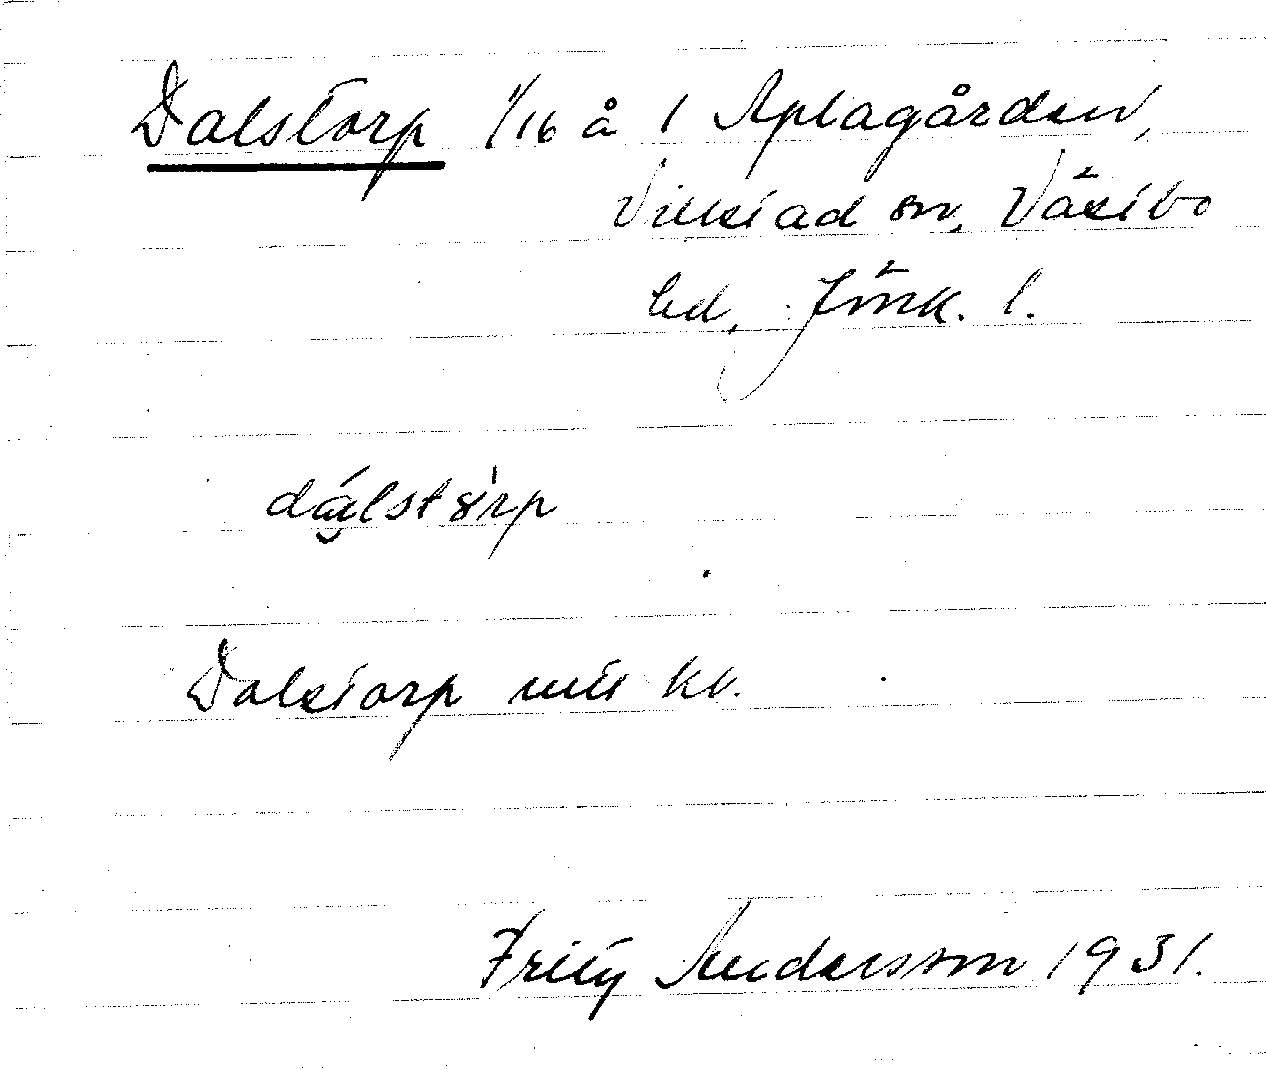 Dalstorp 1/16 å 1 Aplagården,
Villstad sn, Västbo
hd, Jönk. l.
dálstòrp
Dalstorp utt kv.
Fritz Andersson 1931.